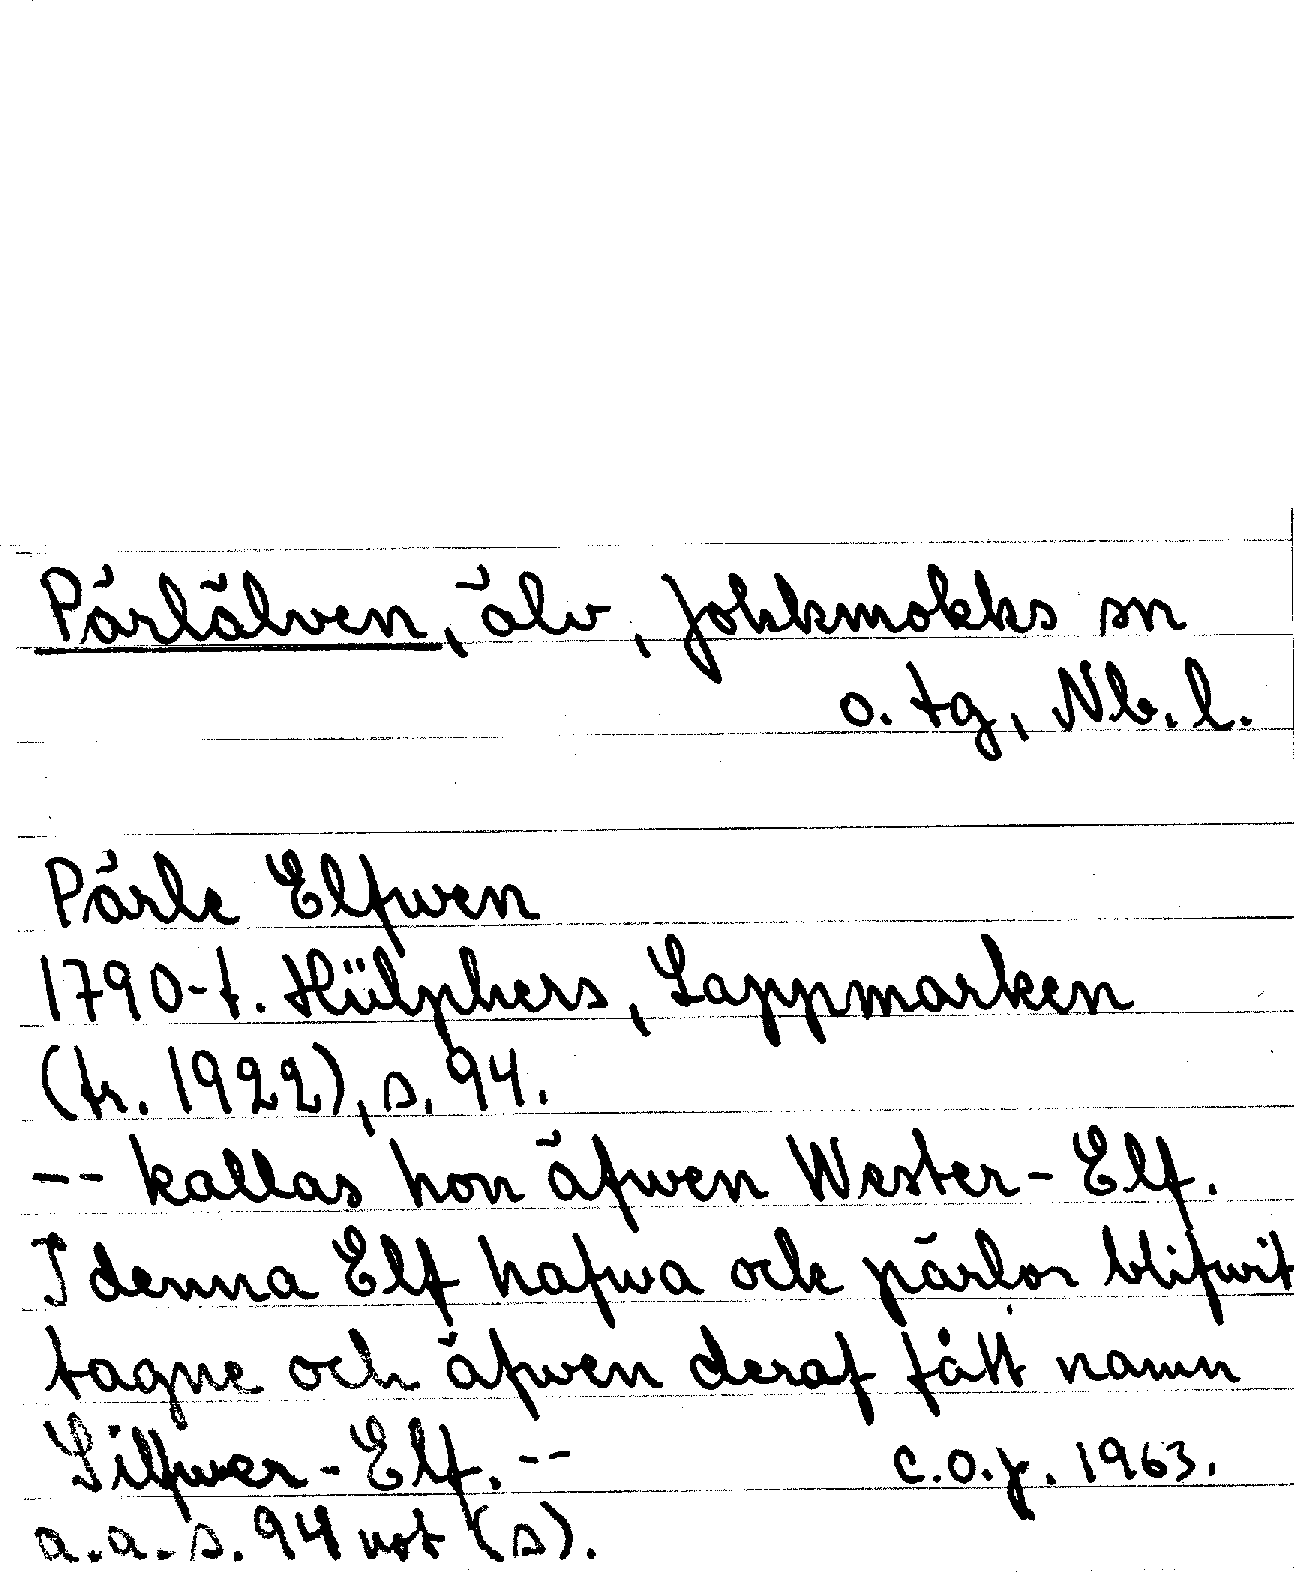 Pärlälven, älv, Jokkmokks sn
o. tg, Nb. l.
Pärle Elfwen
1790-t. Hülphers, Lappmarken
(tr. 1922), s. 94.
-- kallas hon äfwen Wester-Elf.
I denna Elf hafwa ock pärlor blifwit
tagne och äfwen deraf fått namn
Silfwer-Elf. -- C.O.J. 1963.
a.a. s. 94 not (s).